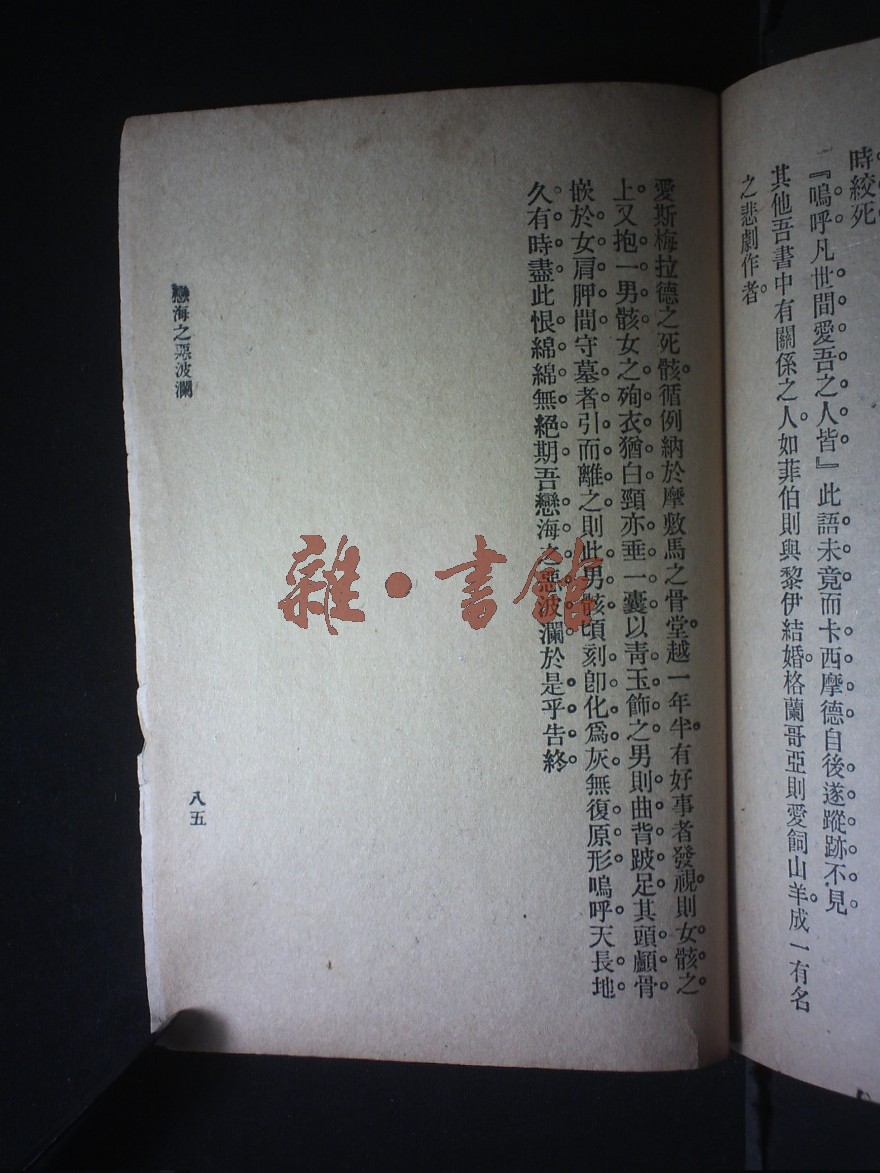 時絞死
『嗚呼凡世間愛吾之人皆』此語未竟而卡西摩德自後遂蹤跡不見
其他吾書中有關係之人如菲伯則與黎伊結婚格蘭哥亞則愛飼山羊成一有名
之悲劇作者
愛斯梅拉德之死骸循例納於摩敷馬之骨堂越一年半有好事者發視則女骸之
上又抱一男骸女之殉衣猶白頸亦垂一囊以靑玉飾之男則曲背跛足其頭顱骨
嵌於女肩胛間守墓者引而離之則此男骸頃刻卽化爲灰無復原形嗚呼天長地
久有時盡此恨綿綿無絕期吾戀海之惡波瀾於是乎告終
戀海之惡波瀾
八五
雜·書館